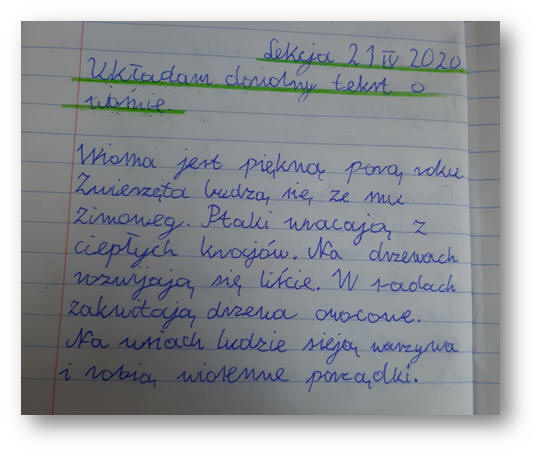 Lekcja 21 IV 2020
Układam dowolny tekst o
wiośnie.
Wiosna jest piękną porą roku.
Zwierzęta budzą się ze snu
zimoweg. Ptaki wracają z
ciepłych krajów. Na drzewach
rozwijają się liście. W sadach
zakwitają drzewa owocowe.
Na wsiach ludzie sieją warzywa
i robią wiosenne porządki.